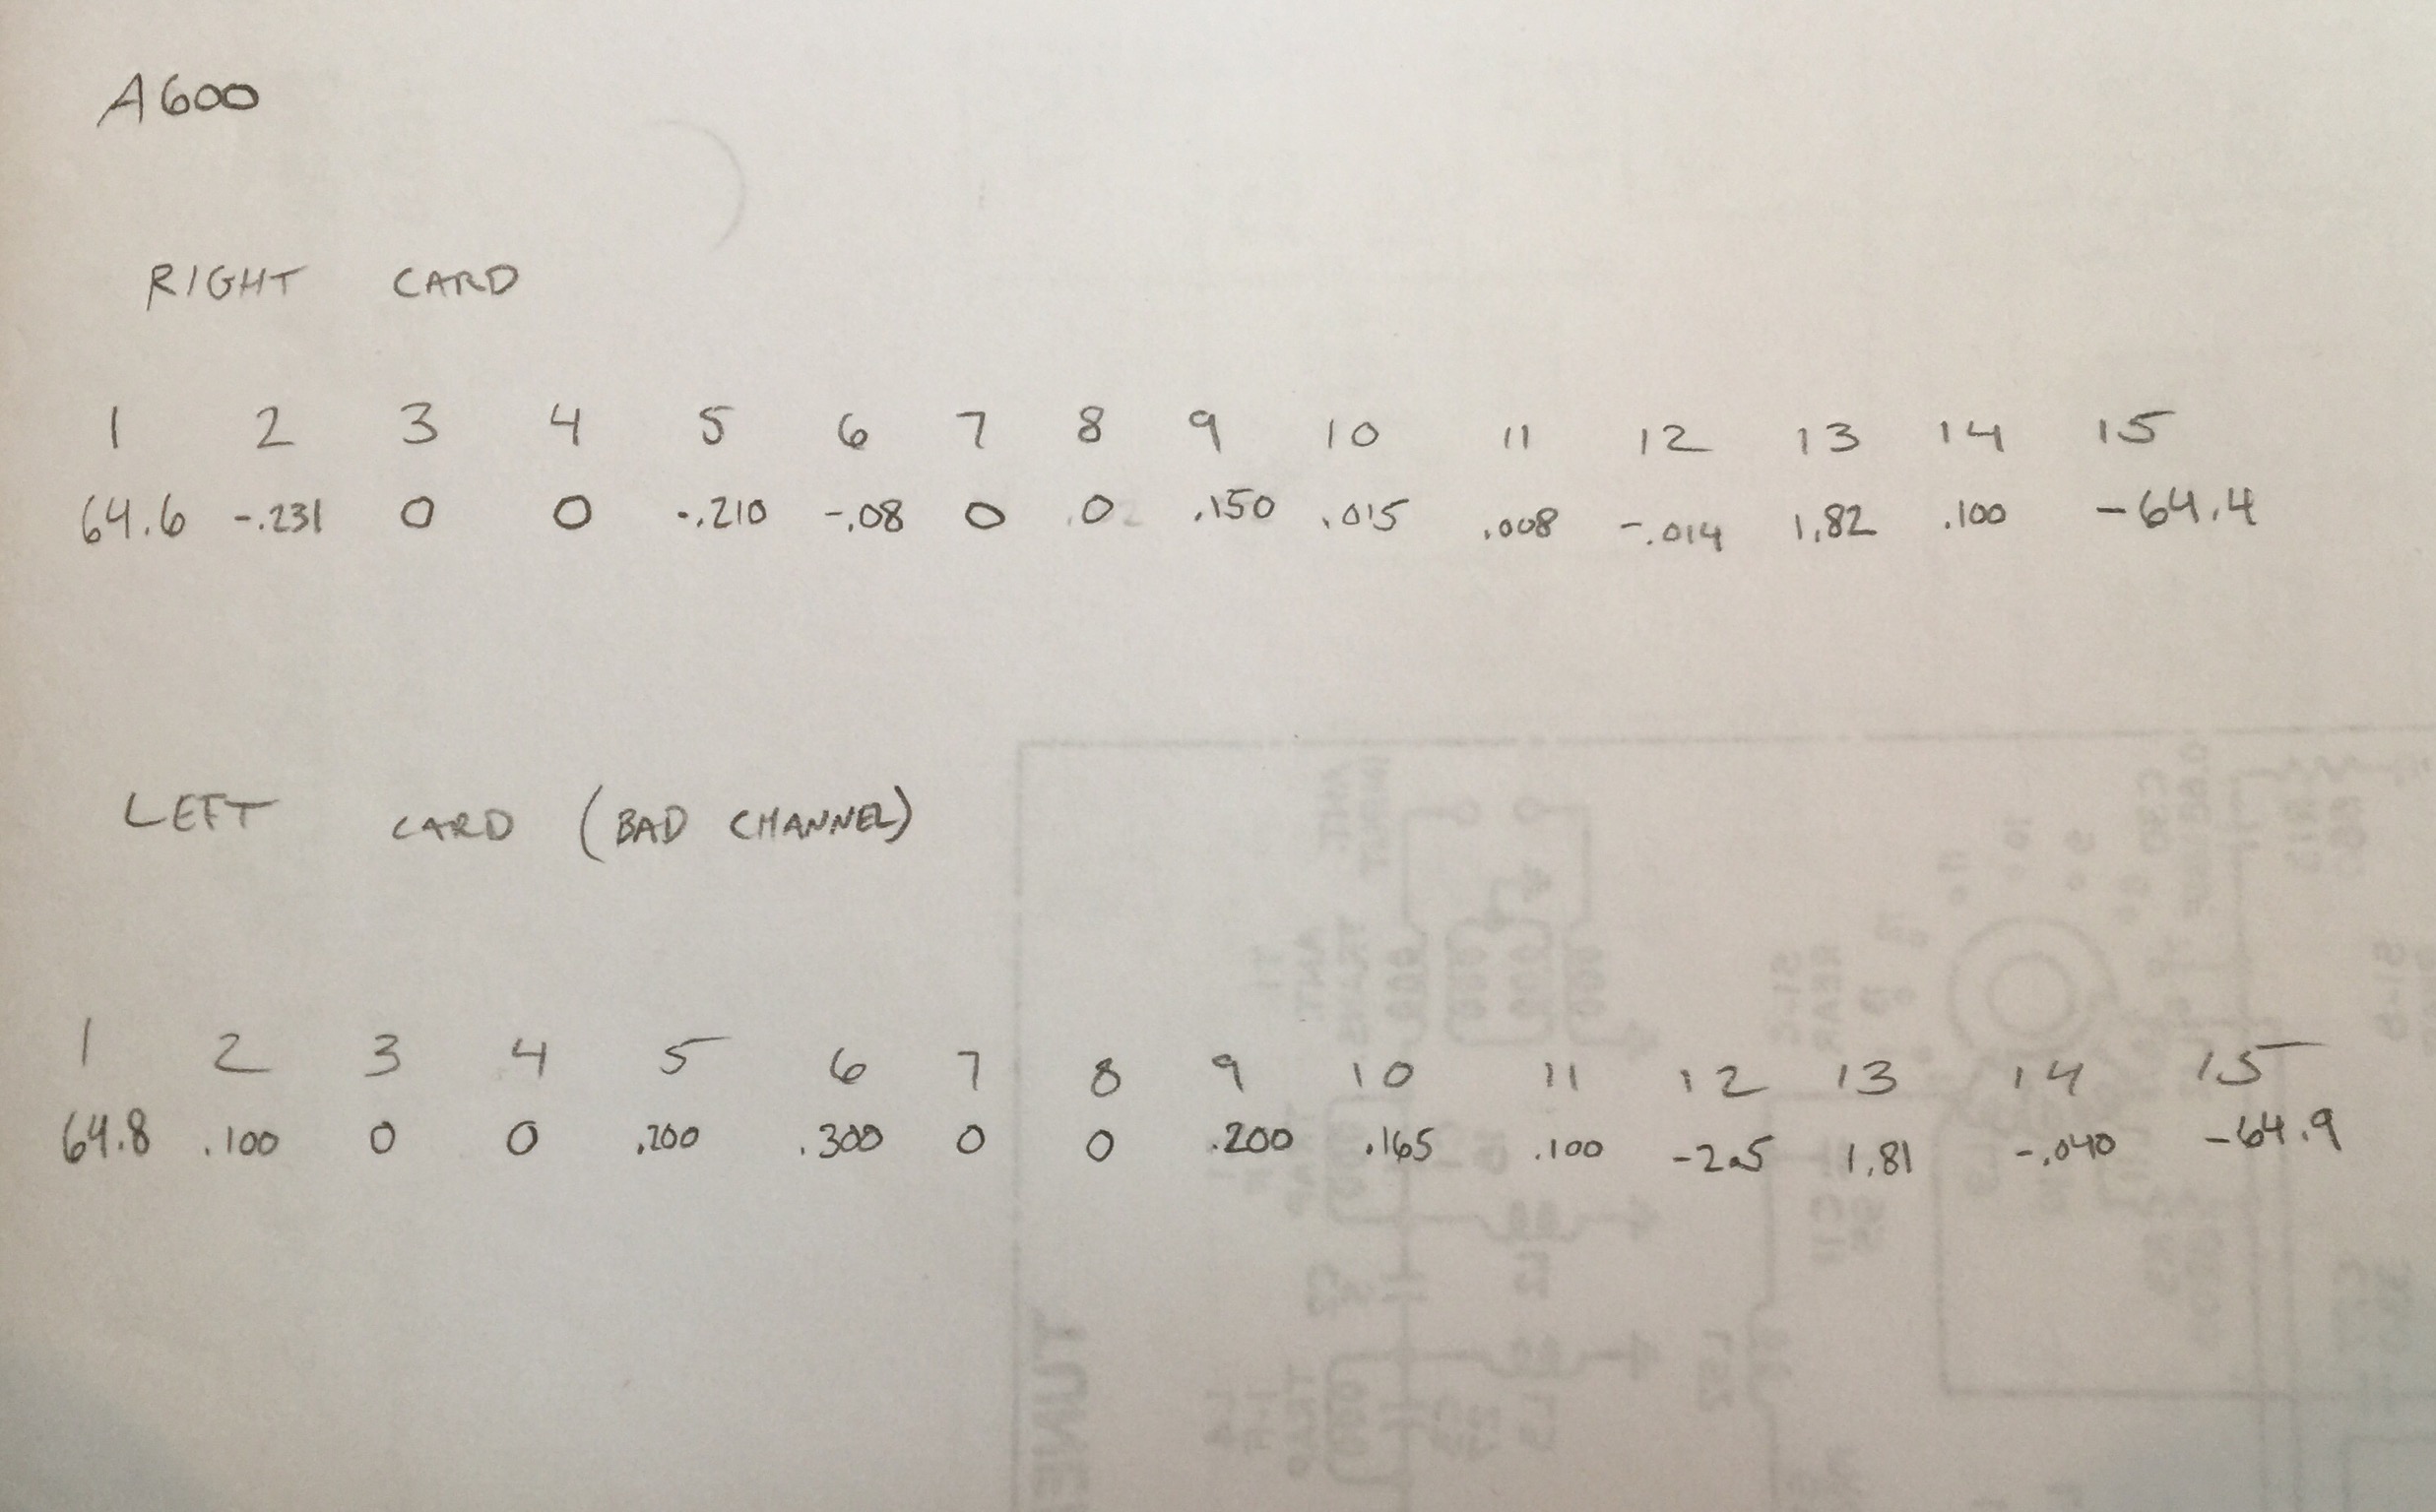 A600
RIGHT CARD
1 2 3 4 5 6 7 8 9 10 11 12 13 14 15
64.6 -.231 0 0 -.210 -.08 0 0 .150 .015 .008 -.014 1.82 .100 -64.4
LEFT CARD (BAD CHANNEL)
1 2 3 4 5 6 7 8 9 10 11 12 13 14 15
64.8 .100 0 0 .200 .300 0 0 .200 .165 .100 -2.5 1.81 -.040 -64.9